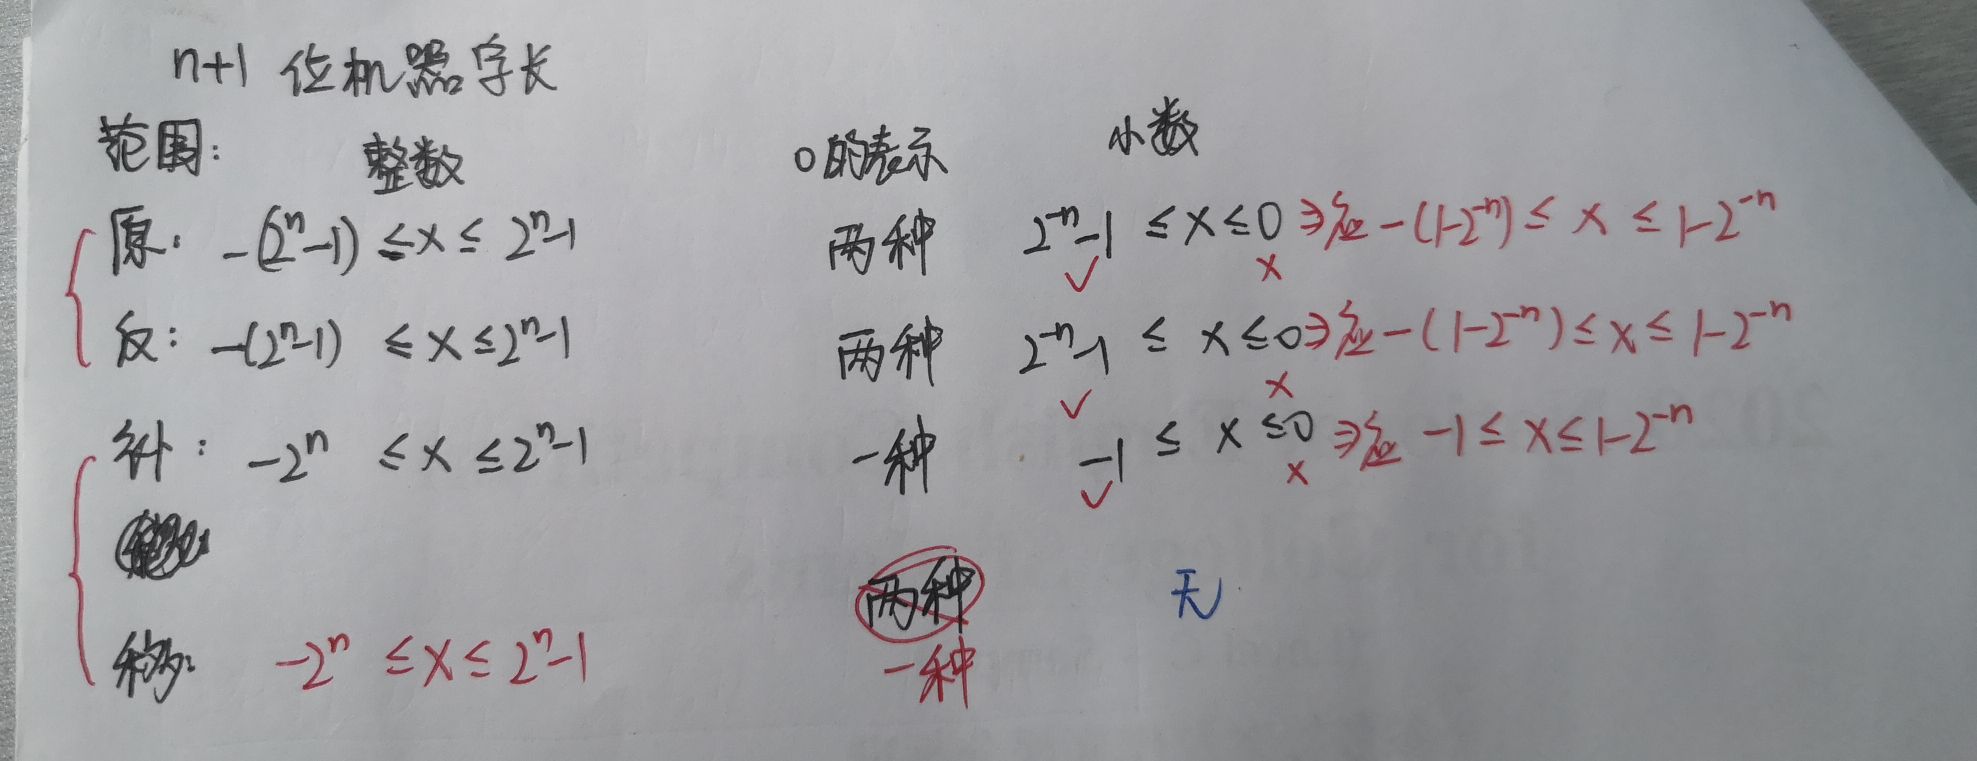 n+1 位机器字长
范围: 整数 0的表示 小数
原: -(2ⁿ-1) ≤x≤ 2ⁿ-1 两种 2⁻ⁿ-1 ≤x≤0 ⇒应 -(1-2⁻ⁿ)≤ x ≤ 1-2⁻ⁿ
✓ ×
反: -(2ⁿ-1) ≤x≤2ⁿ-1 两种 2⁻ⁿ-1 ≤ x≤0 ⇒应 -(1-2⁻ⁿ)≤x≤ 1-2⁻ⁿ
✓ ×
补: -2ⁿ ≤x≤2ⁿ-1 一种 -1 ≤ x≤0 ⇒应 -1≤ x≤1-2⁻ⁿ
✓ ×
两种 无
移: -2ⁿ ≤x≤ 2ⁿ-1 一种